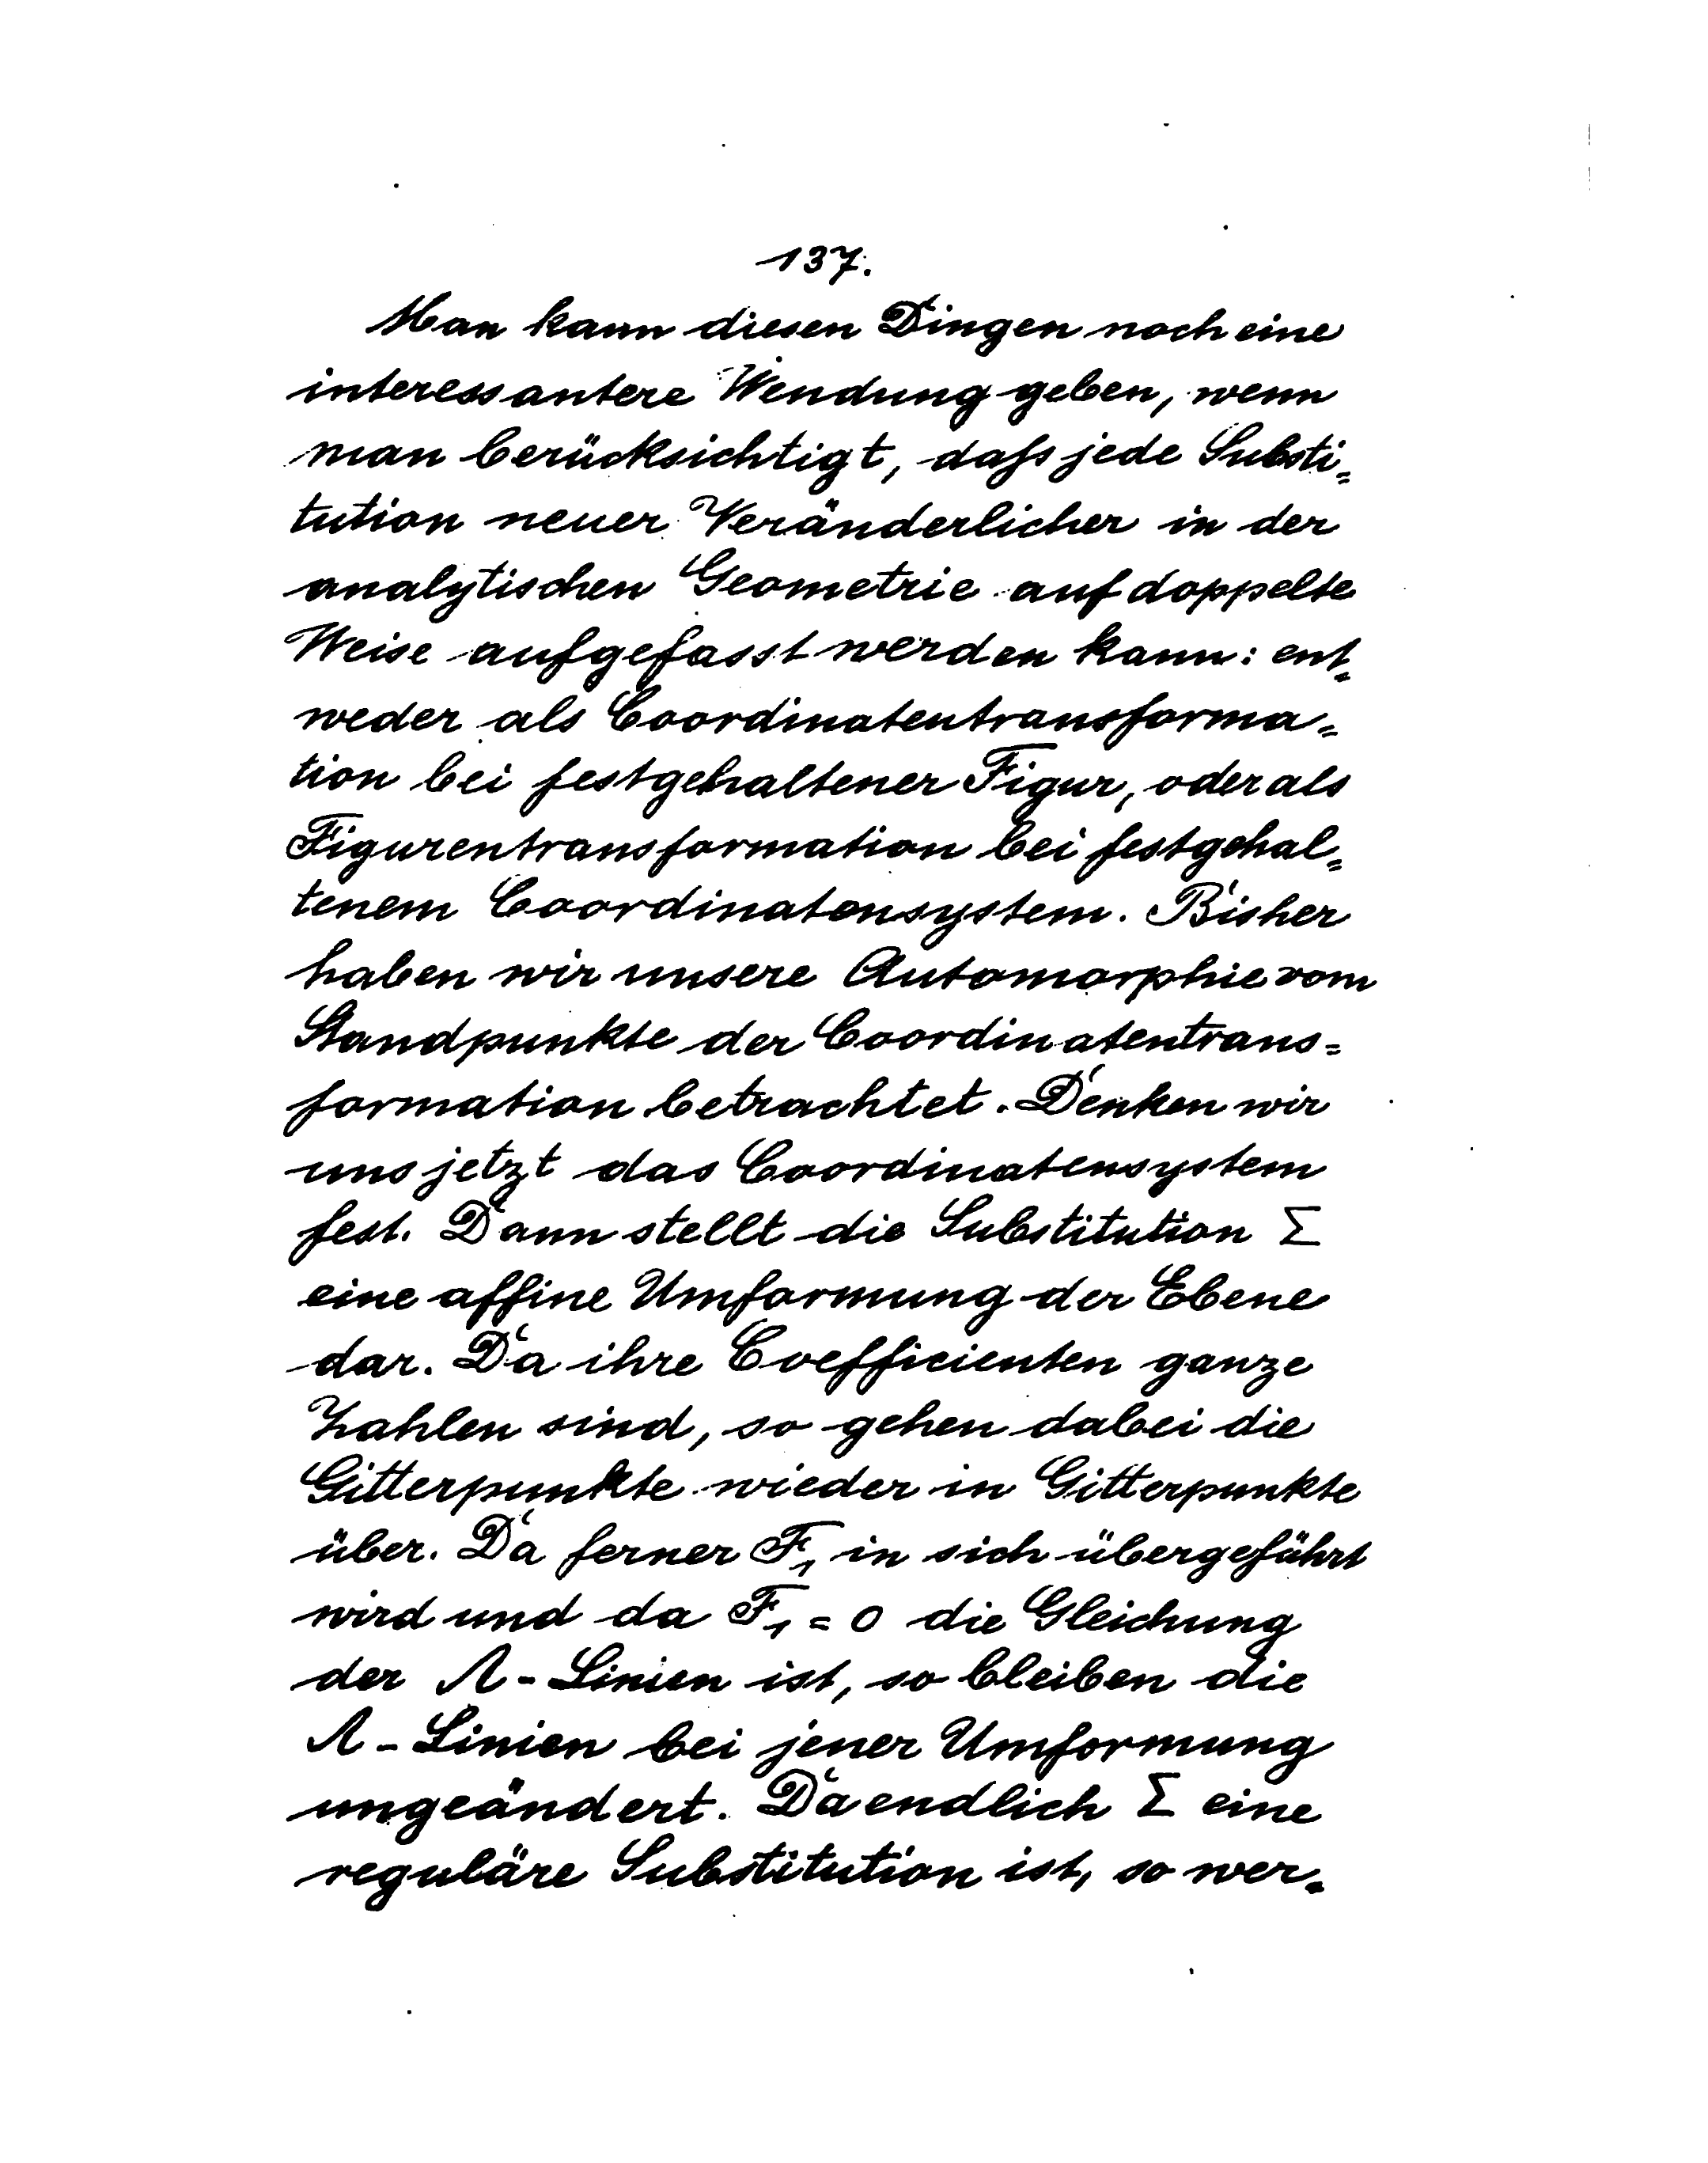 137.
Man kann diesen Dingen noch eine
interessantere Wendung geben, wenn
man berücksichtigt, daſs jede Substi=
tution neuer Veränderlicher in der
analytischen Geometrie auf doppelte
Weise aufgefasst werden kann: ent=
weder als Coordinatentransforma=
tion bei festgehaltener Figur, oder als
Figurentransformation bei festgehal=
tenem Coordinatensystem. Bisher
haben wir unsere Automorphie vom
Standpunkte der Coordinatentrans=
formation betrachtet. Denken wir
uns jetzt das Coordinatensystem
fest. Dann stellt die Substitution Σ
eine affine Umformung der Ebene
dar. Da ihre Coefficienten ganze
Zahlen sind, so gehen dabei die
Gitterpunkte wieder in Gitterpunkte
über. Da ferner F₁ in sich übergeführt
wird und da F₁ = 0 die Gleichung
der Λ-Linien ist, so bleiben die
Λ-Linien bei jener Umformung
ungeändert. Da endlich Σ eine
reguläre Substitution ist, so wer=